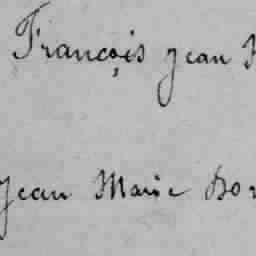 François Jean
Jean Marie Bor